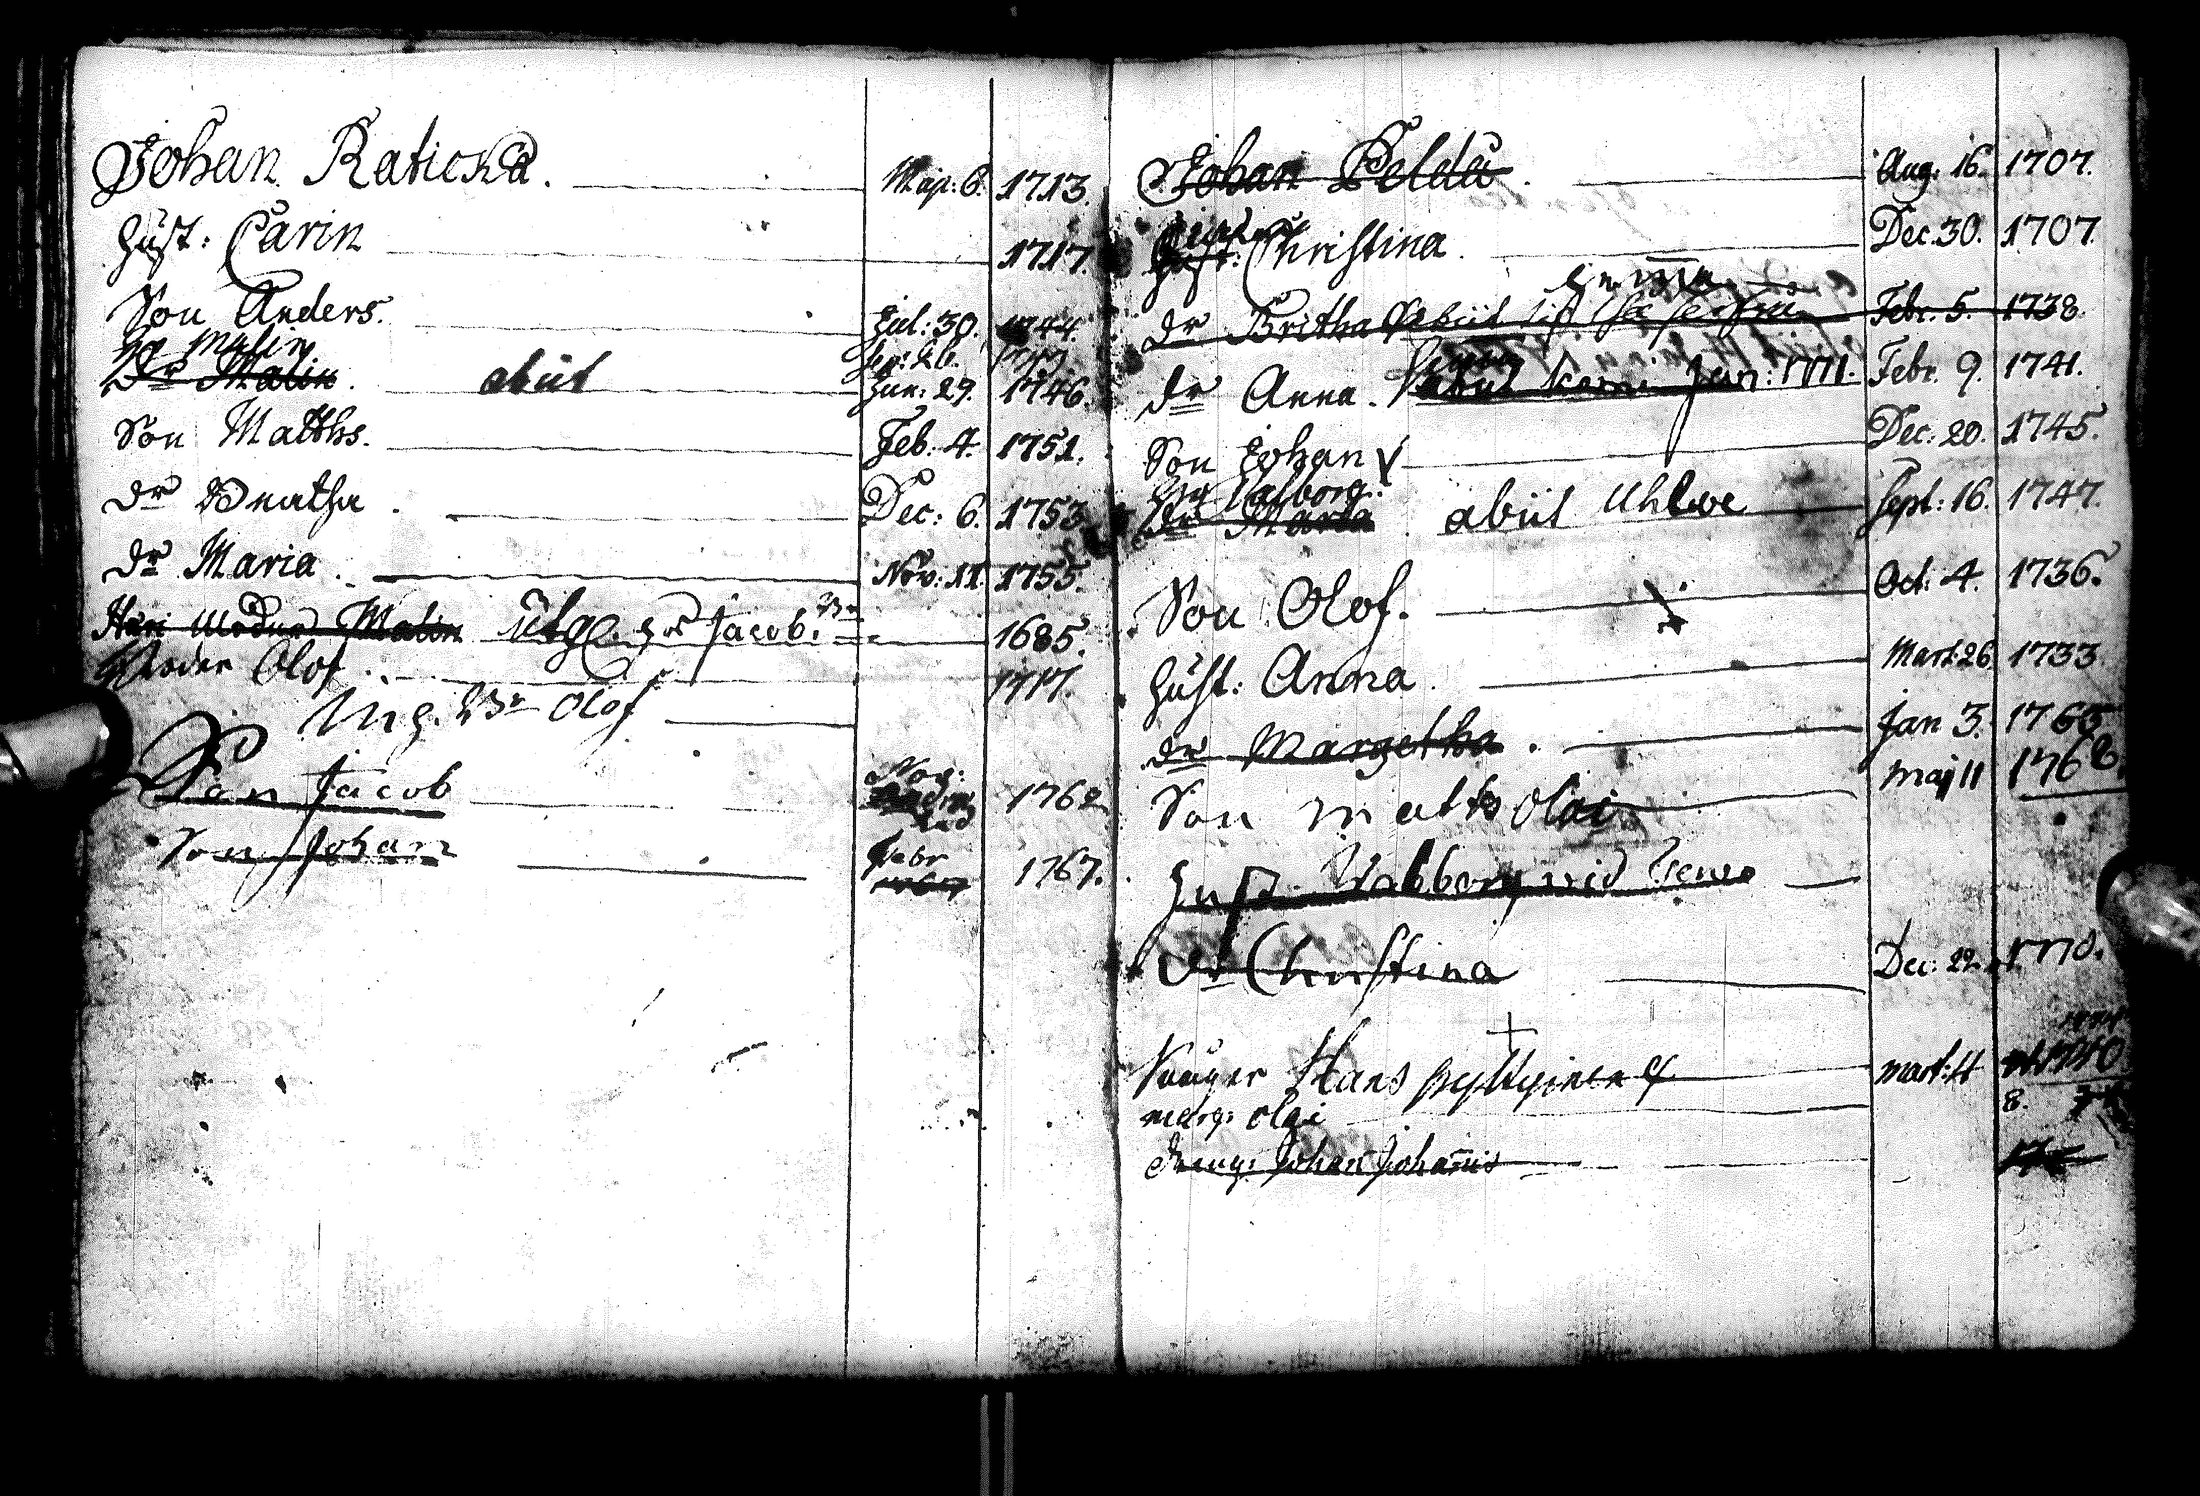 Johan Raticka. Maji: 8. 1713.
Hust: Carin 1717.
Son Anders. Jul: 30. 1744.
Hu Malin.
Dr Malin. abiit Jun: 29. 1746.
Son Matths. Feb: 4. 1751.
Dr Agatha. Dec: 6. 1753.
Dr Maria. Nov: 11. 1755.
Moder Malin Jacob. 1685.
Broder Olof 1717.
Br Olof
Son Jacob Nov: 1762
Son Johan Febr 1767.
Johan Pelda. Aug: 16. 1707.
Hust: Christina. Dec. 30. 1707.
Dr Britha abiit Febr. 5. 1738.
Dr Anna. abiit Jan: 1771. Febr. 9. 1741.
Son Johan Dec. 20. 1745.
Hu Valborg.
Dr Maria abiit Sept: 16. 1747.
Son Olof. Oct: 4. 1736.
Hust: Anna. Mart: 26. 1733.
Dr Margetha. Jan 3. 1765
Son Matts Olai Maj 11 1768.
Hust: Vahborg vid
Dr Christina Dec: 22. 1770.
Hans Mart: 4
Marg: Olai 8.
Dreng: Johan Johannis